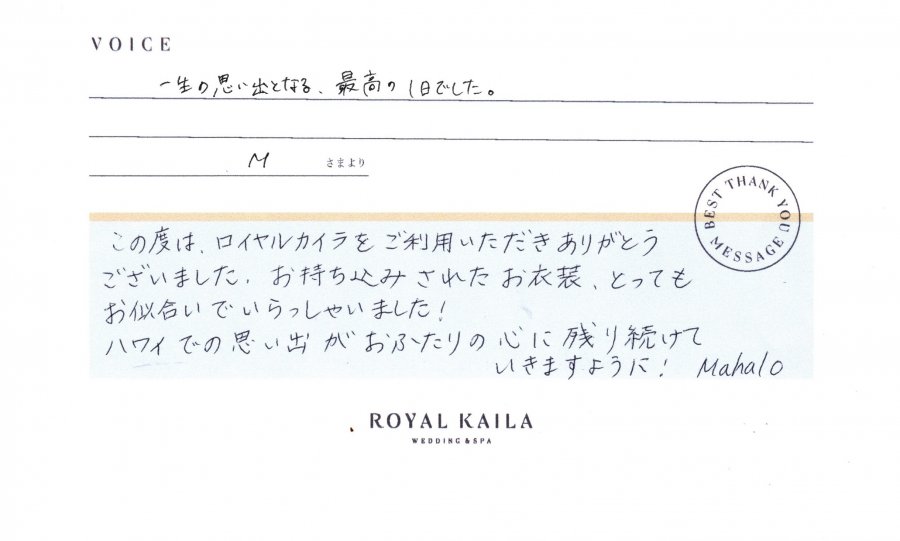 VOICE
一生の思い出となる、最高の1日でした。
M さまより
BEST THANK YOU MESSAGE
この度は、ロイヤルカイラをご利用いただきありがとう
ございました。お持ち込みされたお衣装、とっても
お似合いでいらっしゃいました!
ハワイでの思い出がおふたりの心に残り続けて
いきますように! Mahalo
ROYAL KAILA
WEDDING & SPA